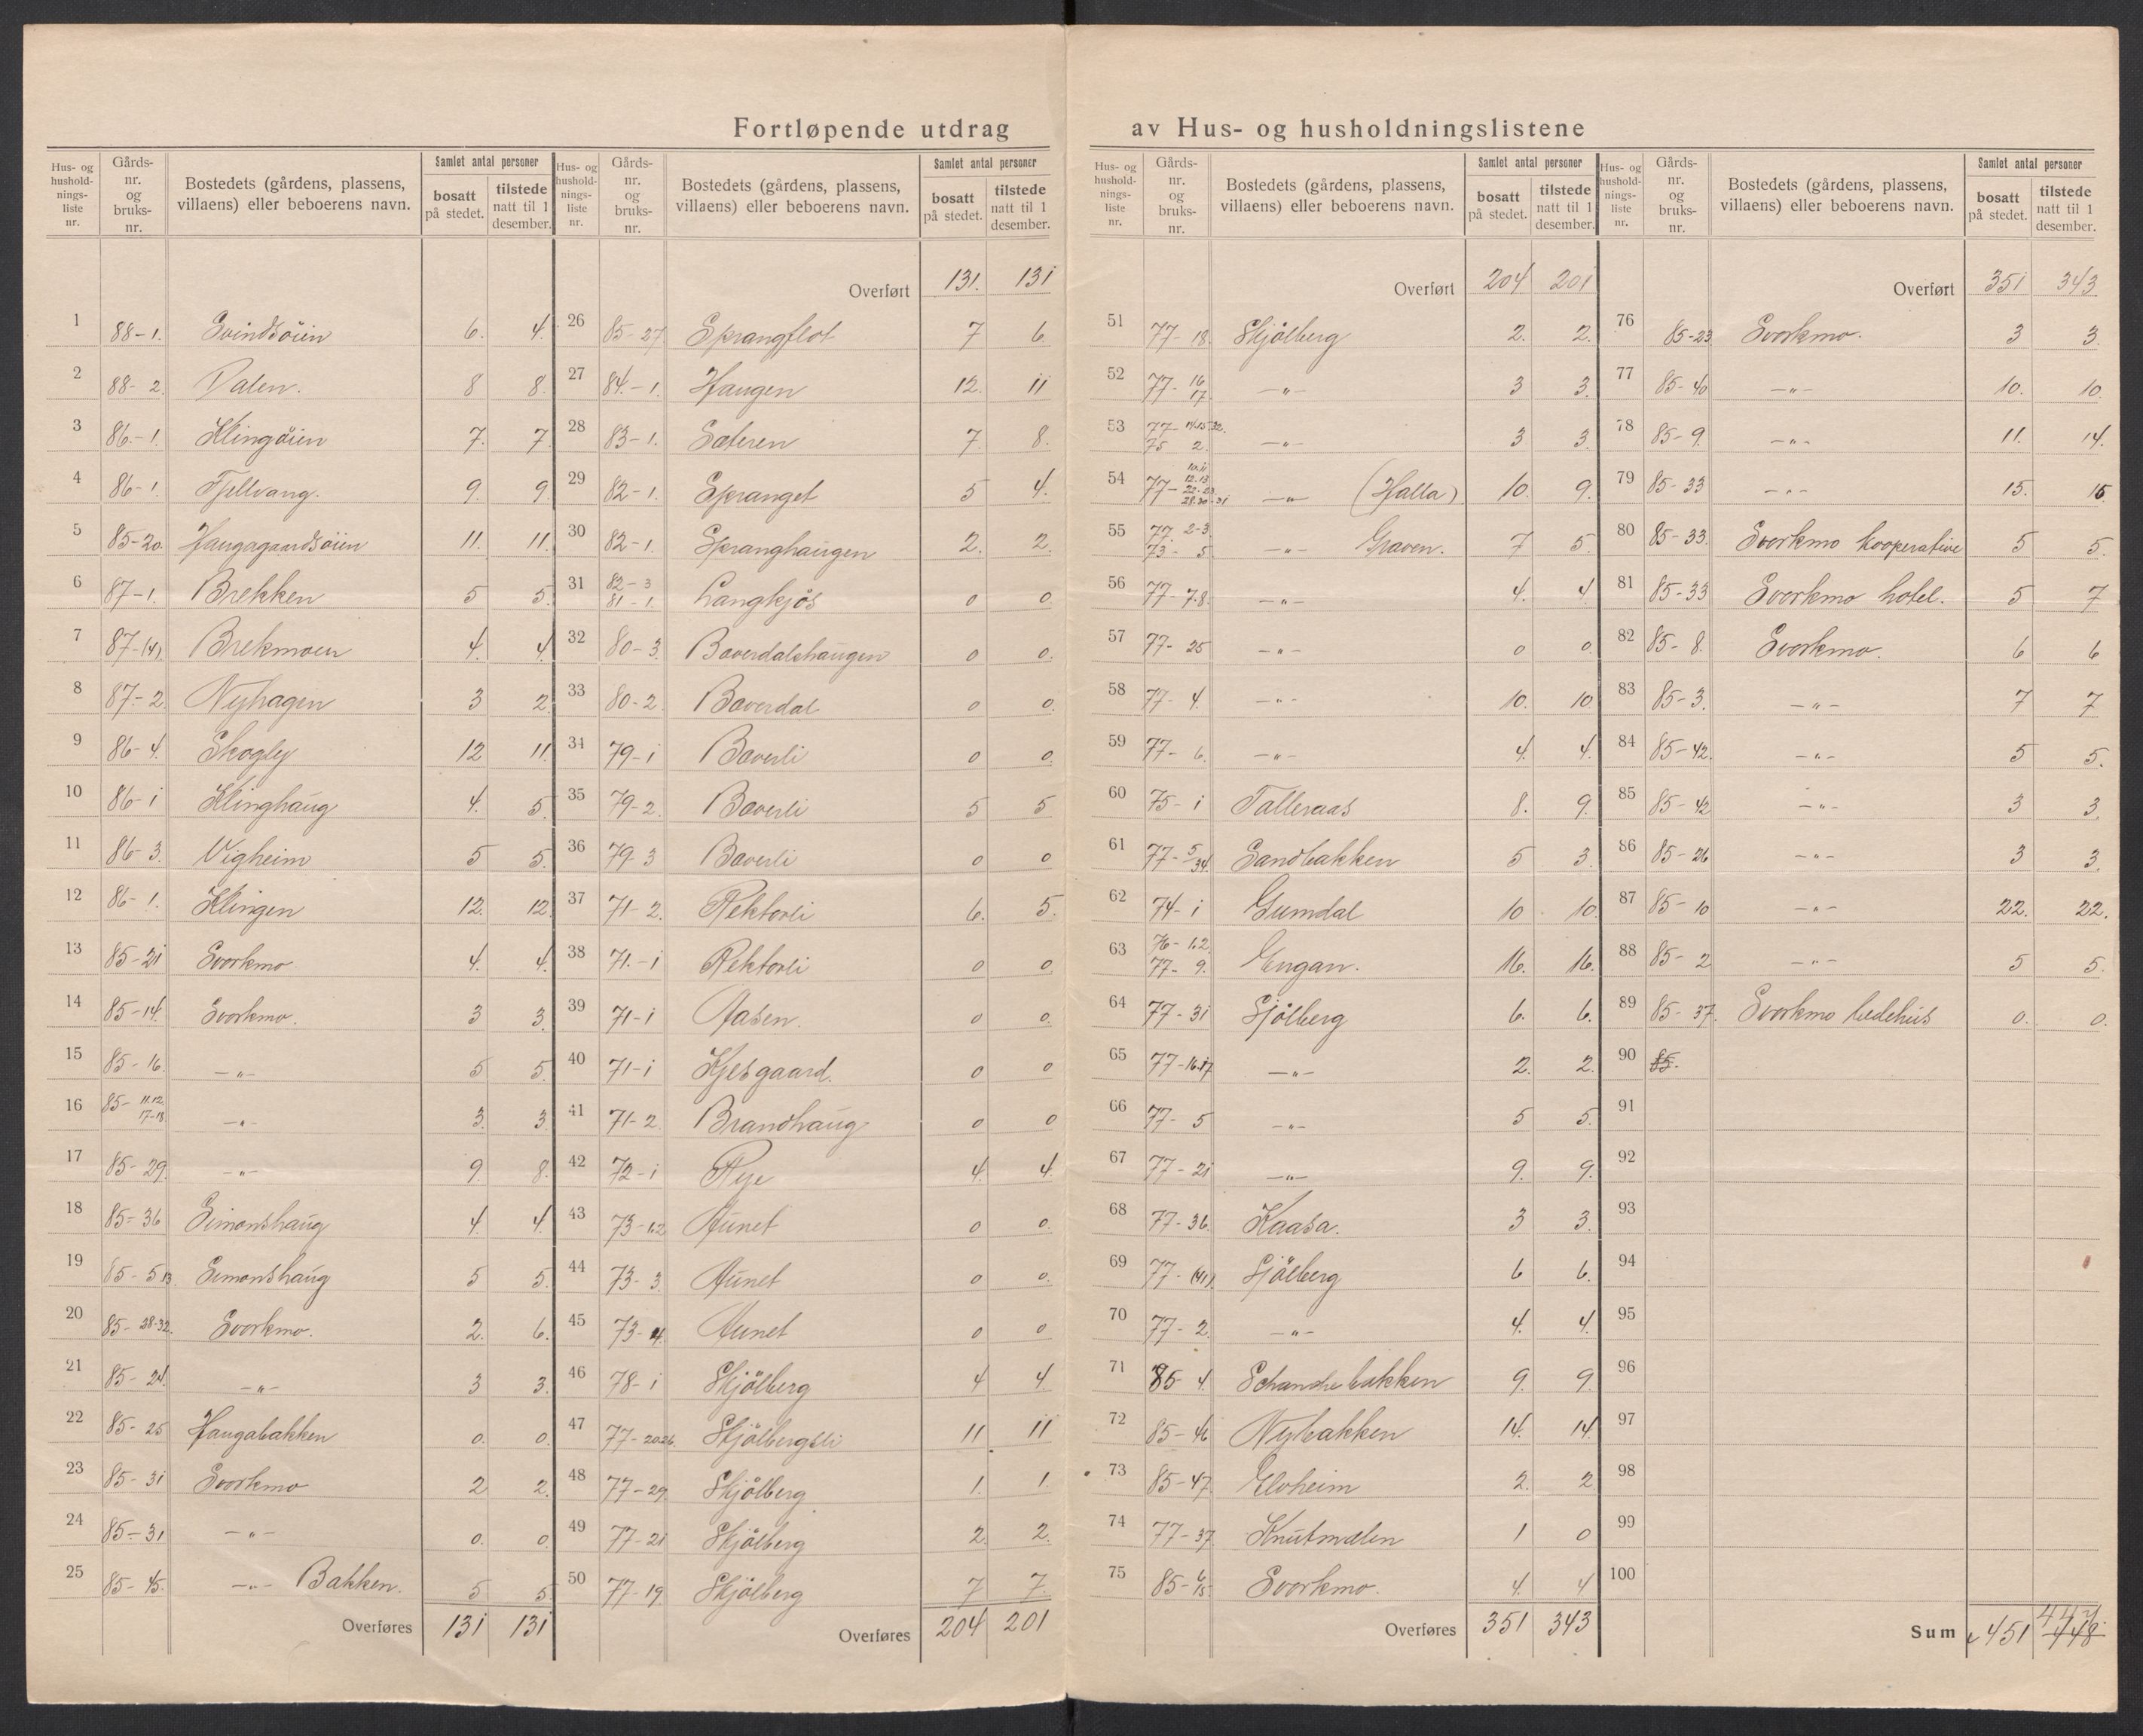 Fortløpende utdrag av Hus- og husholdningslistene
Hus- og husholdningsliste nr. Gårdsnr. og bruksnr. Bostedets (gårdens, plassens, villaens) eller beboerens navn. Samlet antal personer bosatt på stedet. tilstede natt til 1 desember.
1 88-1. Svindsöien 6. 4.
2 88-2. Dalen. 8 8.
3 86-1. Klingöien 7. 7.
4 86-1. Fjellvang. 9. 9.
5 85-20. Haugagaardsöien 11. 11.
6 87-1. Brekken 5 5.
7 87-(4). Brekmoen 4. 4.
8 87-2. Nyhagen 3 2.
9 86-4. Skogly 12 11.
10 86-1 Klinghaug 4. 5.
11 86-3. Vigheim 5 5.
12 86-1. Klingen 12. 12.
13 85-21 Svorkmo 4. 4.
14 85-14. Svorkmo. 3 3.
15 85-16. -"- 5 5.
16 85-11.12. 17-18. -"- 3. 3.
17 85-29. -"- 9. 8.
18 85-36 Simonshaug 4. 4.
19 85-5 13. Simonshaug 5 5.
20 85-28-32. Svorkmo. 2. 6.
21 85-24. -"- 3 3.
22 85-25 Haugabakken 0. 0.
23 85-31 Svorkmo 2 2.
24 85-31 -"- 0. 0.
25 85-45. -"- Bakken. 5 5.
Overføres 131 131
Hus- og husholdningsliste nr. Gårdsnr. og bruksnr. Bostedets (gårdens, plassens, villaens) eller beboerens navn. Samlet antal personer bosatt på stedet. tilstede natt til 1 desember.
Overført 131. 131
26 85-27 Sprangflot 7 6.
27 84.-1. Haugen 12. 11
28 83-1. Sæteren 7. 8.
29 82-1. Spranget 5 4.
30 82-1. Spranghaugen 2. 2.
31 82-3 81-1. Langkjös 0 0.
32 80-3. Baverdalshaugen 0 0.
33 80-2. Baverdal 0 0.
34 79-1 Baverli 0 0.
35 79-2. Baverli 5 5
36 79-3 Baverli 0 0
37 71-2. Rektorli 6. 5.
38 71.-1 Rektorli 0 0.
39 71-1 Aasen. 0 0.
40 71-1 Kjesgaard. 0 0
41 71-2. Brandhaug 0 0
42 72-1 Rye 4. 4.
43 73-1.2 Aunet 0 0.
44 73-3. Aunet 0 0.
45 73-4. Aunet 0 0
46 78-1 Skjölberg 4 4.
47 77-20.26. Skjölbergsli 11 11
48 77-29. Skjölberg 1. 1.
49 77-21 Skjölberg 2 2.
50 77-19 Skjölberg 7 7.
Overføres 204 201
Hus- og husholdningsliste nr. Gårdsnr. og bruksnr. Bostedets (gårdens, plassens, villaens) eller beboerens navn. Samlet antal personer bosatt på stedet. tilstede natt til 1 desember.
Overført 204 201
51 77-18. Skjölberg 2. 2.
52 77-16 17. -"- 3 3.
53 77-14.15.32. 75 2. -"- 3 3.
54 77-10.11 12.13 22-23 28.30-31 -"- (Halla) 10. 9.
55 77. 2-3. 73-5 -"- Graven. 7 5.
56 77-7.8. -"- 4. 4.
57 77-25 -"- 0 0.
58 77-4. -"- 10. 10
59 77-6. -"- 4. 4.
60 75-1 Talleraas 8. 9.
61 77-5/34. Sandbakken 5 3.
62 74-1 Gumdal 10 10.
63 76-1.2. 77-9. Engan. 16. 16.
64 77-31 Sjölberg 6. 6.
65 77-16.17 -"- 2. 2.
66 77-5 -"- 5 5.
67 77-21 -"- 9. 9.
68 77-36. Kaasa. 3 3.
69 77-(41). Sjölberg 6 6.
70 77-2. -"- 4. 4.
71 85 4. Schanchebakken 9. 9.
72 85-46 Nybakken 14. 14.
73 85-47. Elvheim 2. 2
74 77-37 Knutmælen 1 0
75 85-6/15. Svorkmo. 4. 4
Overføres 351 343
Hus- og husholdningsliste nr. Gårdsnr. og bruksnr. Bostedets (gårdens, plassens, villaens) eller beboerens navn. Samlet antal personer bosatt på stedet. tilstede natt til 1 desember.
Overført 351 343
76 85-23 Svorkmo. 3 3.
77 85-40 -"- 10. 10.
78 85-9. -"- 11. 14.
79 85-33 -"- 15. 15
80 85-33. Svorkmo kooperative 5 5.
81 85-33 Svorkmo hotel. 5 7
82 85-8. Svorkmo. 6 6
83 85-3. -"- 7 7
84 85-42. -"- 5 5.
85 85-42 -"- 3 3.
86 85-26 -"- 3 3.
87 85-10 -"- 22. 22.
88 85-2 -"- 5 5.
89 85-37. Svorkmo bedehus 0. 0.
90 85.
91
92
93
94
95
96
97
98
99
100
Sum 451 448